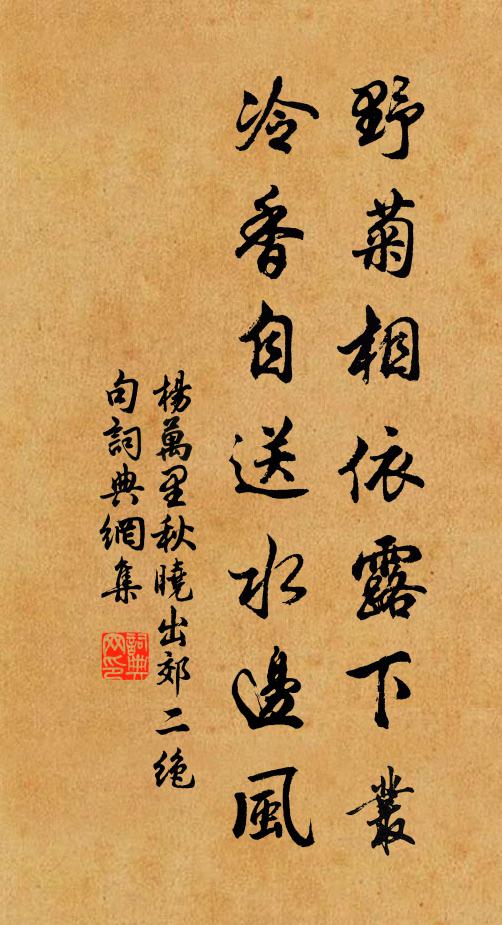 野菊相依露下叢
冷香自送水邊風
楊萬里秋曉出郊二絶
句詞典網集
詞典
网印